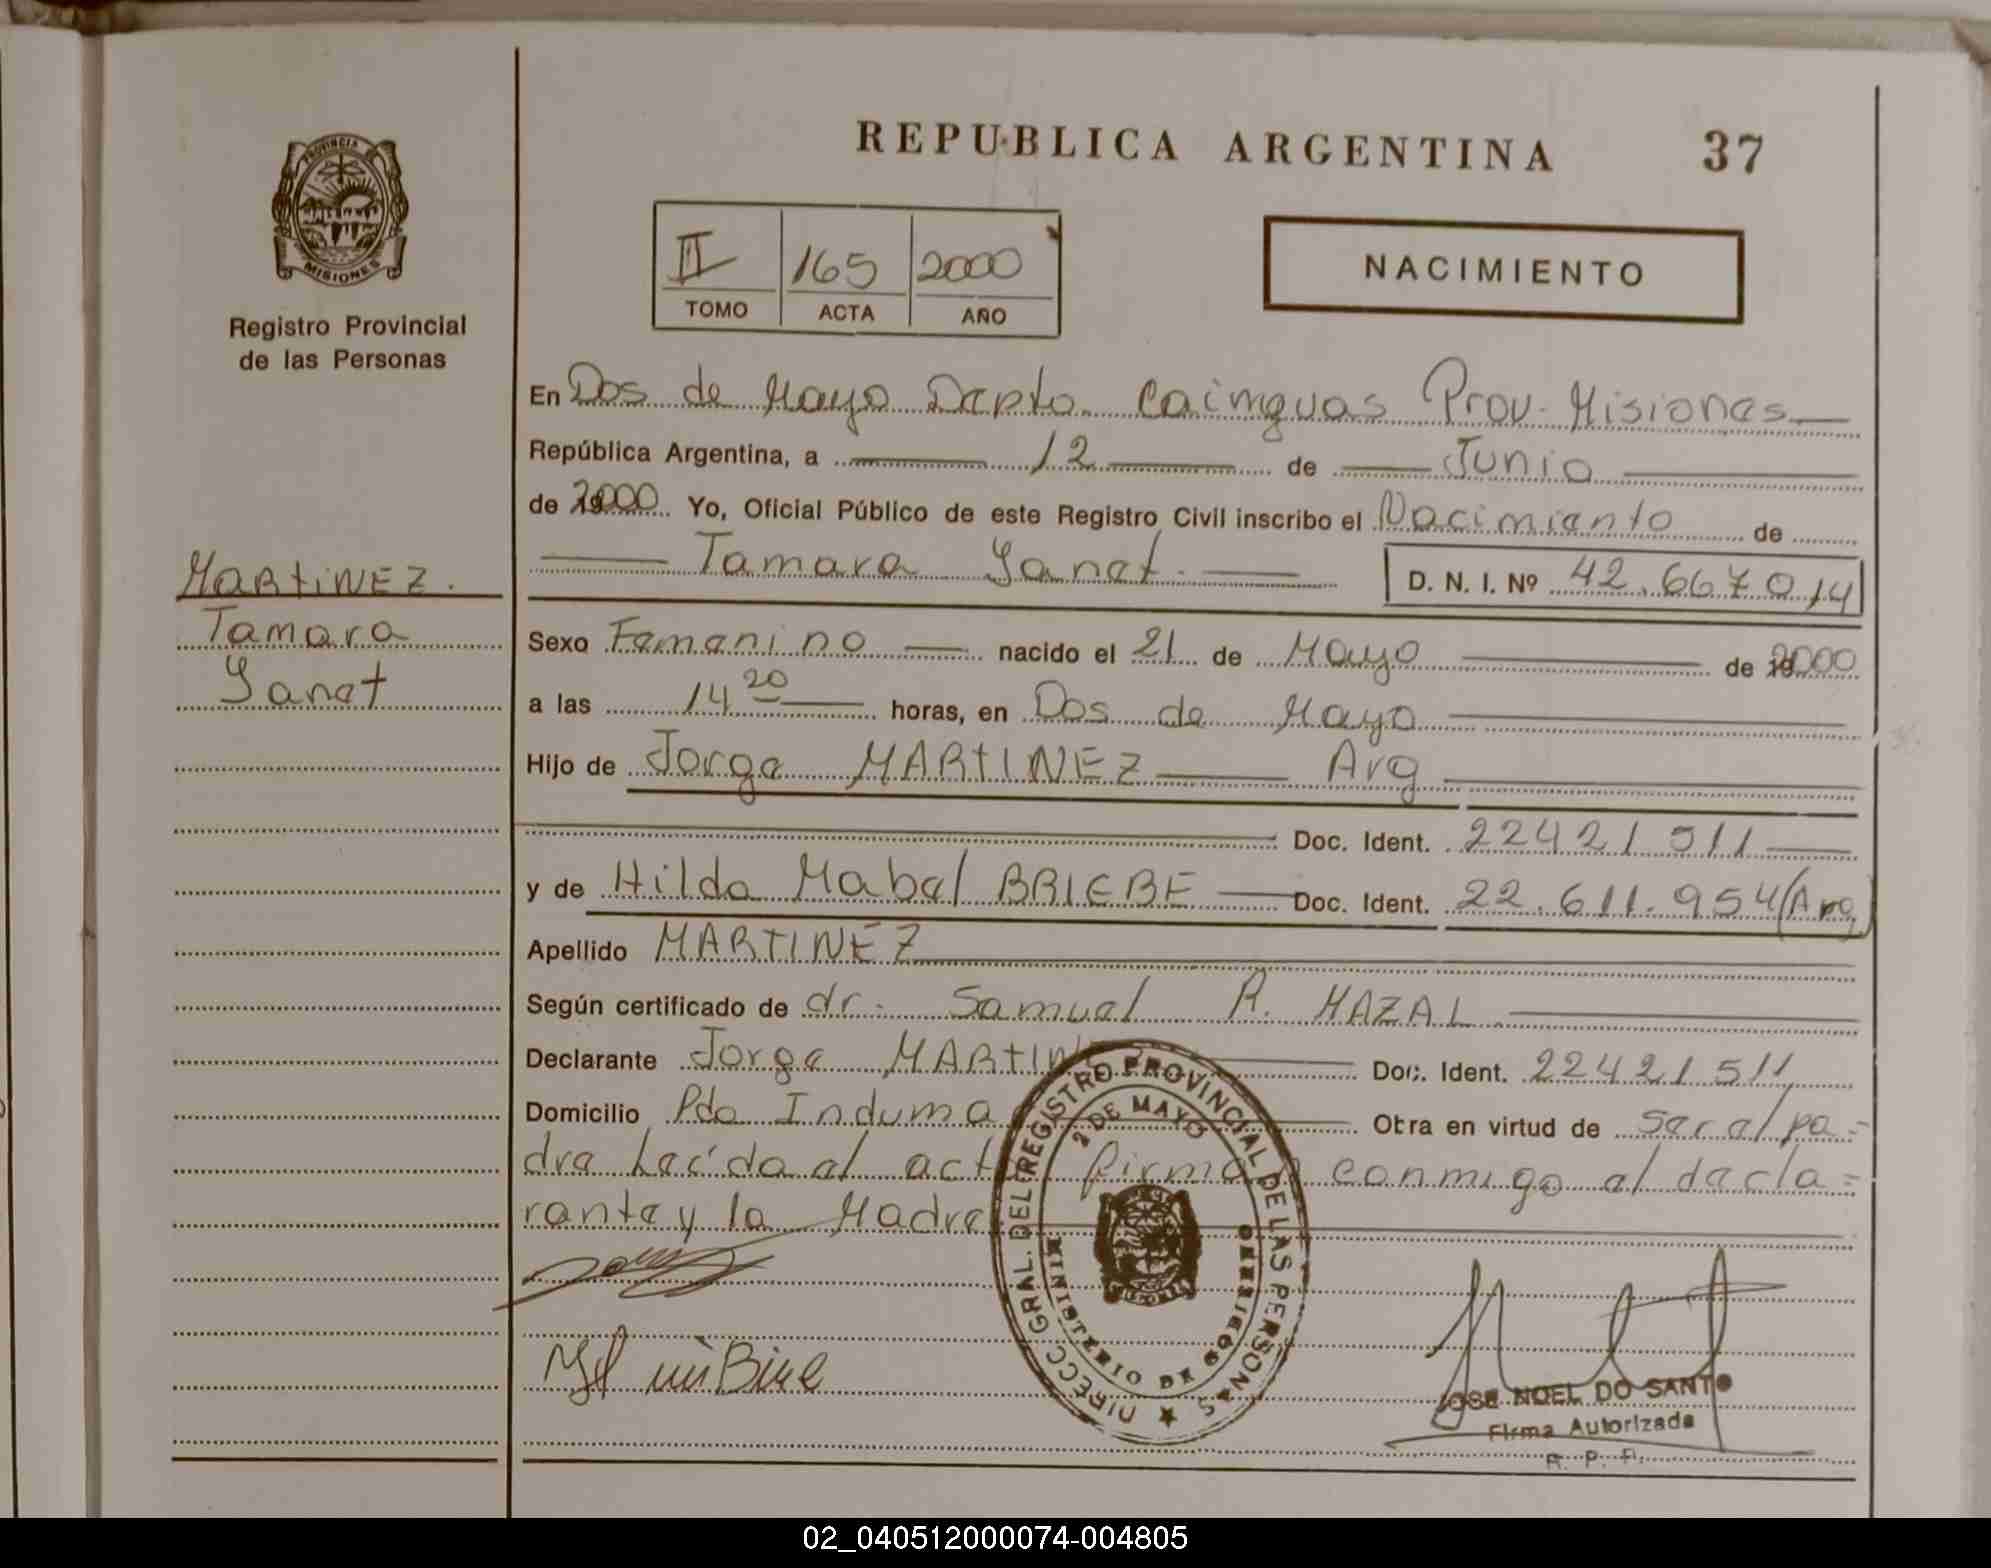 REPUBLICA ARGENTINA 37
PROVINCIA DE MISIONES
Registro Provincial
de las Personas
II 165 2000
TOMO ACTA AÑO
NACIMIENTO
En Dos de Mayo Depto. Cainguas Prov. Misiones
República Argentina, a 12 de Junio
de 2000 Yo, Oficial Público de este Registro Civil inscribo el Nacimiento de
Tamara Yanet. D. N. I. Nº 42.667014
MARTINEZ.
Tamara
Yanet
Sexo Femenino nacido el 21 de Mayo de 2000
a las 14 20 horas, en Dos de Mayo
Hijo de Jorge MARTINEZ Arg
Doc. Ident. 22421511
y de Hilda Mabel BRIEBE Doc. Ident. 22.611.954 (Arg)
Apellido MARTINEZ
Según certificado de dr. Samuel R. MAZAL
Declarante Jorge MARTINEZ Doc. Ident. 22421511
Domicilio Pdo Induma Otra en virtud de ser el pa=
dre Leída el acta firman conmigo el decla=
rante y la Madre
DIRECC. GRAL. DEL REGISTRO PROVINCIAL DE LAS PERSONAS
2 DE MAYO
MINISTERIO DE GOBIERNO
JOSE NOEL DO SANTO
Firma Autorizada
R. P. P.
02_040512000074-004805